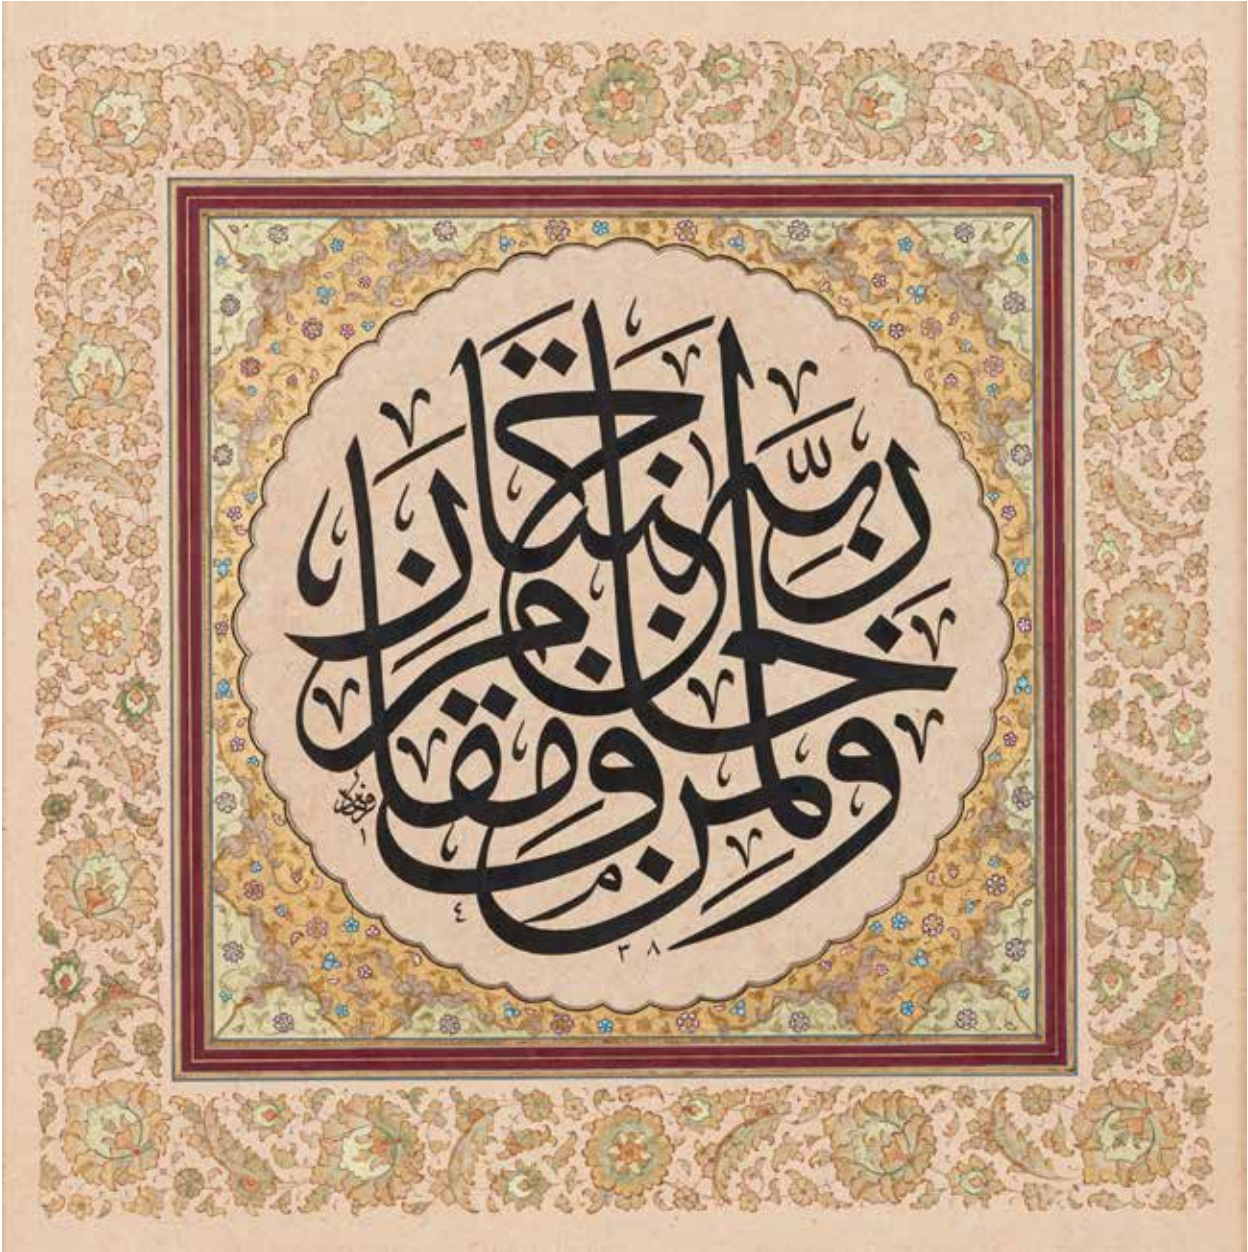 ولمن خاف مقام ربه جنتان
١٤٣٨